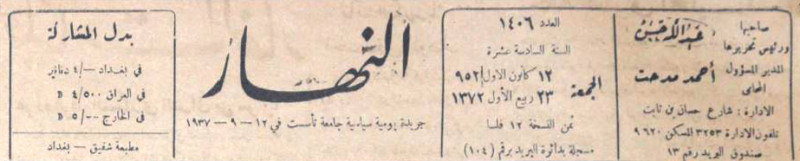 صاحبها
ورئيس تحريرها
عبد الله حسن
المدير المسؤول
المحامي
أحمد مدحت
الادارة : شارع حسان بن ثابت
تلفون الادارة ٣٢٥٣ المسكن ٩٦٢٠
صندوق البريد رقم ١٣
العدد ١٤٠٦
السنة السادسة عشرة
الجمعة
١٢ كانون الاول/٩٥٢
٢٣ ربيع الأول ١٣٧٢
ثمن النسخة ١٢ فلسا
مسجلة بدائرة البريد برقم (١٠٤)
النهار
جريدة يومية سياسية جامعة تأسست في ١٢-٩-١٩٣٧
بدل المشاركة
في بغداد -/٤ دنانير
في العراق ٤/٥٠٠ D
في الخارج ٥/٠٠ D
مطبعة شفيق - بغداد